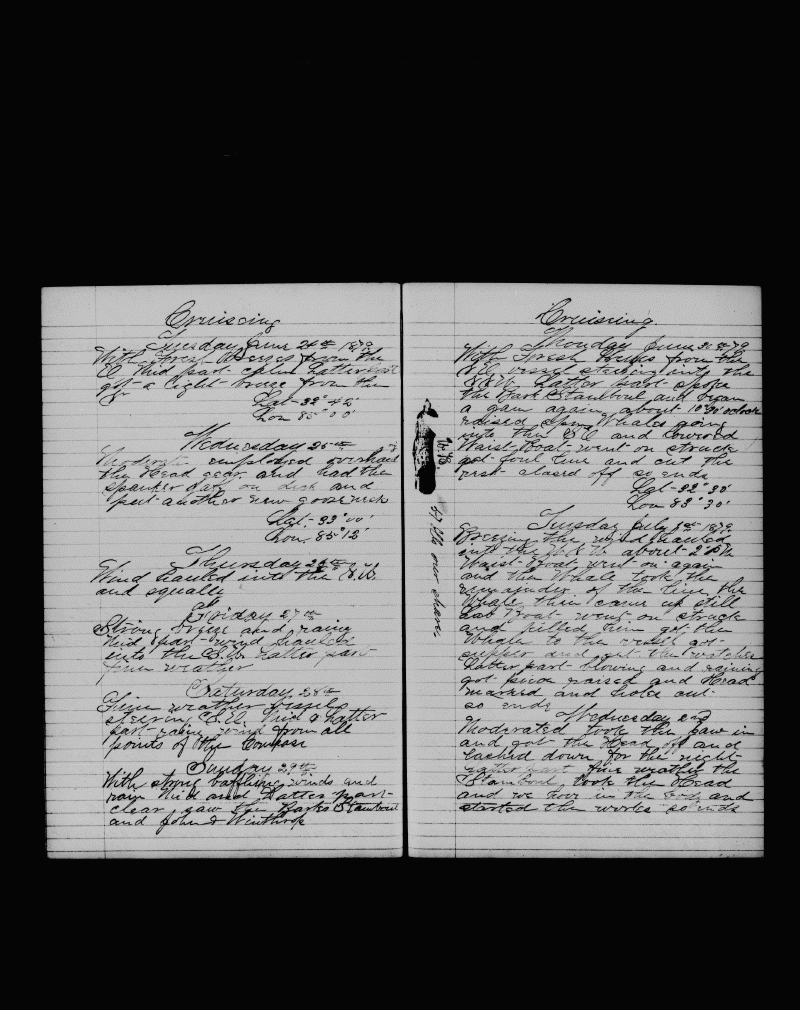 Cruising
Tuesday June 24th 1879
With Fresh Breezes from the
E Mid part calm Latter part
got a light breeze from the
Lat 32° 42'
Lon 85° 00'
Wednesday 25th
Moderate employed overhaul
the Head gear and had the
Spanker Gaff on deck and
put another new gooseneck
Lat. 33° 00'
Lon. 85° 12'
Thursday 26th
Wind hauled into the
and squally
Friday 27th
Strong breeze and rainy
Mid part wind hauled
into the S.W. Latter part
fine weather
Saturday 28th
Given weather vessels
steering Mid & Latter
part rainy wind from all
points of the Compass
Sunday 29th
With strong baffling winds and
rain Mid and Latter part
clear saw the Barks Stamboul
and John & Winthrop
Cruising
Monday June 30 1879
With Fresh breezes from the
vessel steering into the
Latter part spoke
the Bark Stamboul and began
a gam again about 10 00 oclock
raised Spm Whales going
into the S E and lowered
Waist Boat went on struck
got foul line and cut the
rest closed off so ends
Lat 32° 30'
Lon 83° 30'
Tuesday July 1st 1879
Breezing the wind hauled
into the about 2 PM
Waist Boat went on again
and the Whale took the
remainder of the line the
Whale then came up still
Boat went on struck
and killed him got the
Whale to the vessel got
supper and set the watches
Latter part blowing and raining
got piece raised and Head
marked and holes cut
so ends
Wednesday 2nd
Moderated took the Jaw in
and got the Head off and
lashed down for the night
Latter part fine weather the
Stamboul took the Head
and we hove in the body and
started the works so ends
47 bbls our share